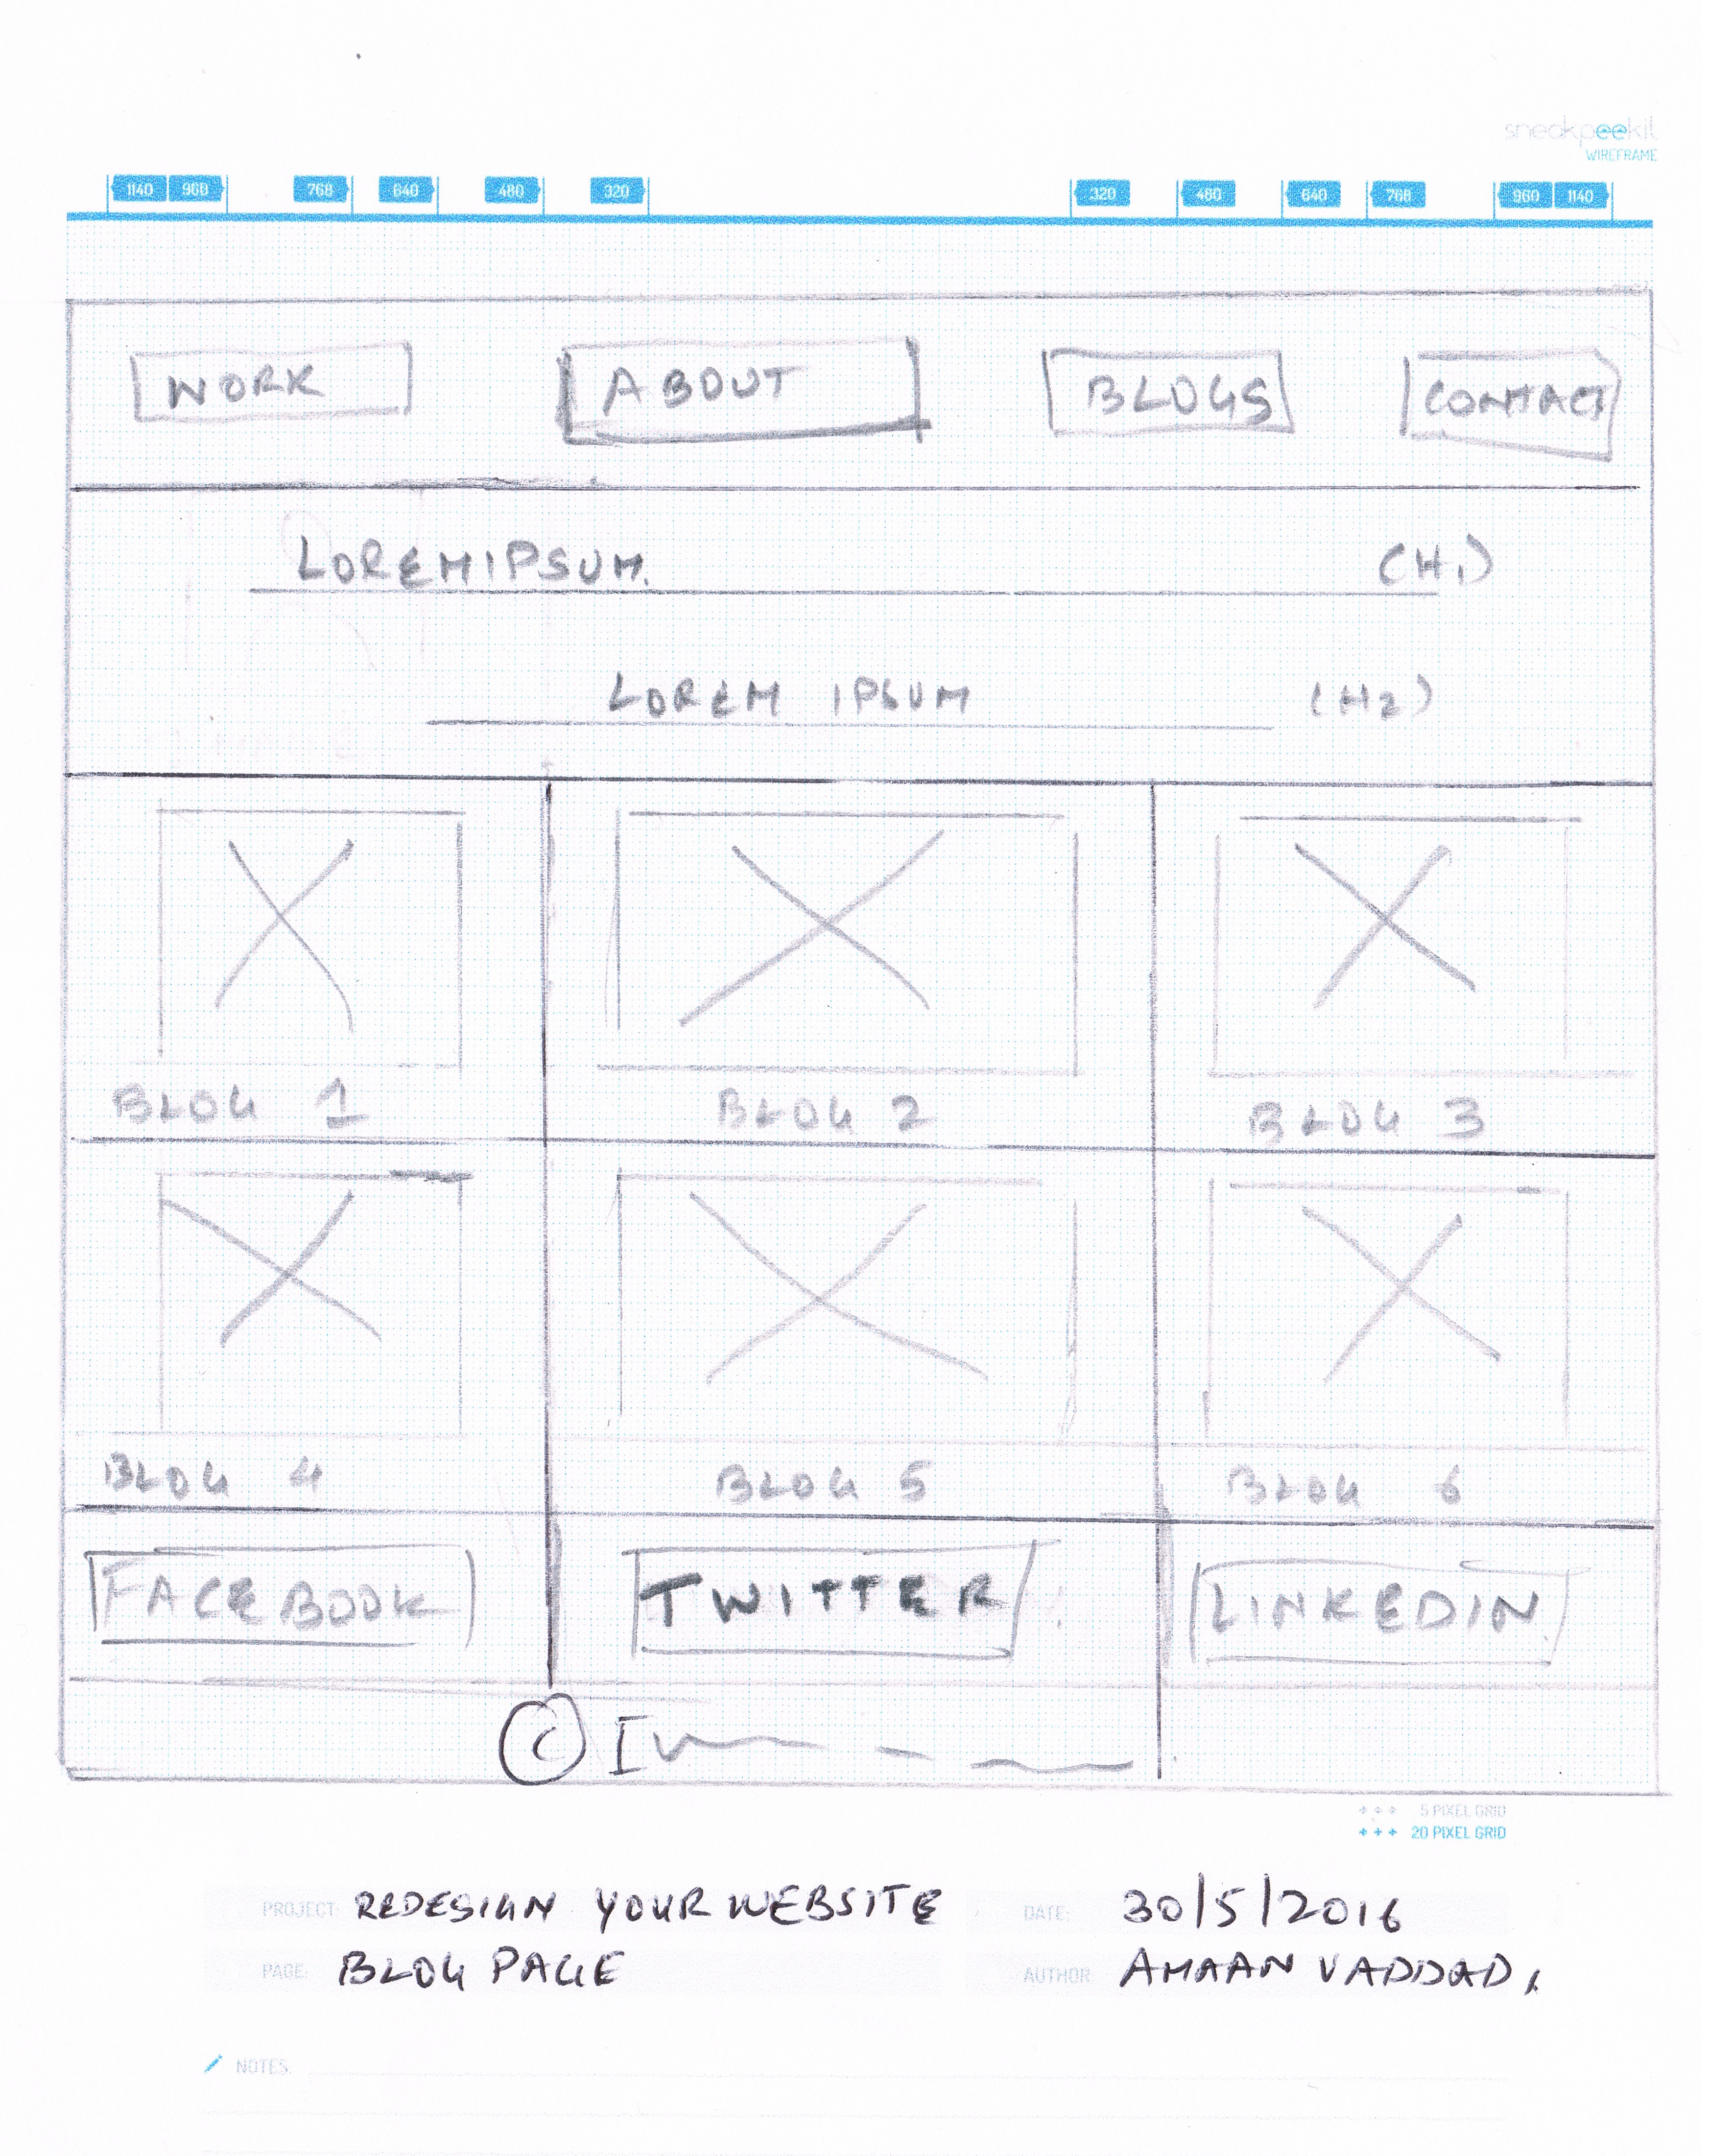 sneakpeekit
WIREFRAME
1140 960 768 640 480 320 320 480 640 768 960 1140
WORK ABOUT BLOGS CONTACT
LOREM IPSUM. (H1)
LOREM IPSUM (H2)
BLOG 1 BLOG 2 BLOG 3
BLOG 4 BLOG 5 BLOG 6
FACEBOOK TWITTER LINKEDIN
©
5 PIXEL GRID
20 PIXEL GRID
PROJECT: REDESIGN YOUR WEBSITE DATE: 30/5/2016
PAGE: BLOG PAGE AUTHOR: AMAAN VADDAD.
NOTES: